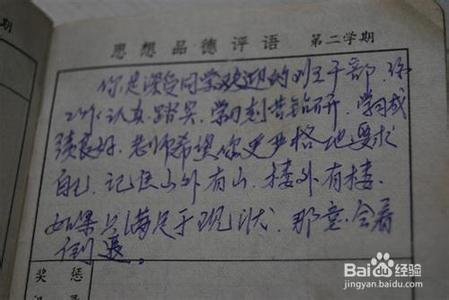 思想品德评语 第二学期
你是深受同学欢迎的班干部
认真、踏实、学习刻苦钻研、学习成
绩良好、老师希望你更严格地要求
自己、记住山外有山、楼外有楼、
如果只满足于现状、那就会
倒退。
奖惩
Baidu经验
jingyan.baidu.com